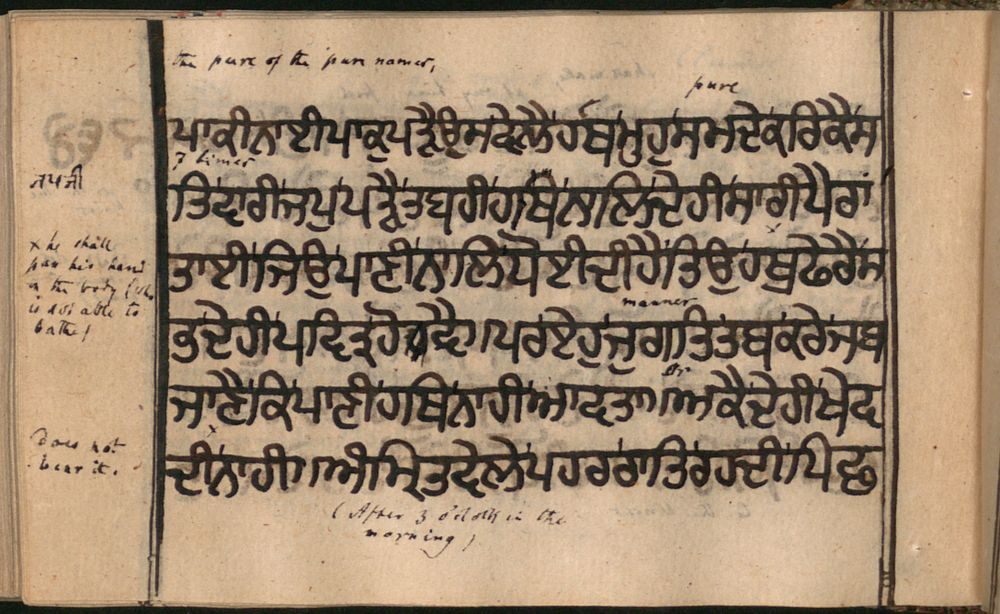 the pure of the pure names,
pure
ਪਾਕੀਨਾਈਪਾਕੁਪੜੈਉਸਵੇਲੈਹਥਮੁਹੁਸਮਦੇਕਰਿਕੈਸ
7 times
ਜਪਜੀ
ਤਿਵਾਰੀਜਪੁਪੜੈਤਬਹੀਹਥਿਨਾਲਿਦੇਹੀਸਾਰੀਪੈਰਾਂ
x he shall
pass his hand
on the body (who
is not able to
bathe)
ਤਾਈਜਿਉਪਾਣੀਨਾਲਿਧੋਈਦੀਹੈਤਿਉਹਥੁਫੇਰੈਸ
manner
ਭਦੇਹੀਪਵਿਤ੍ਰਹੋਵੈ॥ਪਰਏਹੁਜੁਗਤਿਤਬਕਰੇਜਬ
or
ਜਾਣੈਕਿਪਾਣੀਹਥਿਨਾਹੀਆਵਤਾ॥ਅਕੈਦੇਹੀਖੇਵ
does not
bear it.
ਦੀਨਾਹੀ॥ਅੰਮ੍ਰਿਤਵੇਲੇਪਹਰਰਾਤਿਰਹਦੀਪਿਛ
(After 3 o'clock in the
morning)